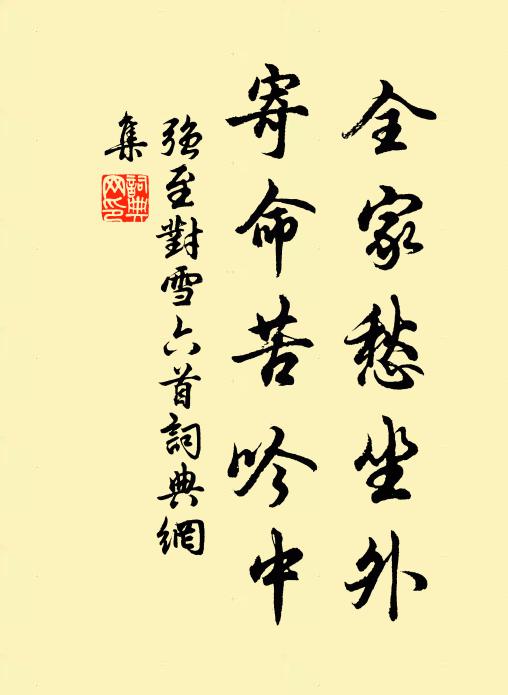 全家愁坐外
寄命苦吟中
強至對雪六首詞典網
集
詞典
网印